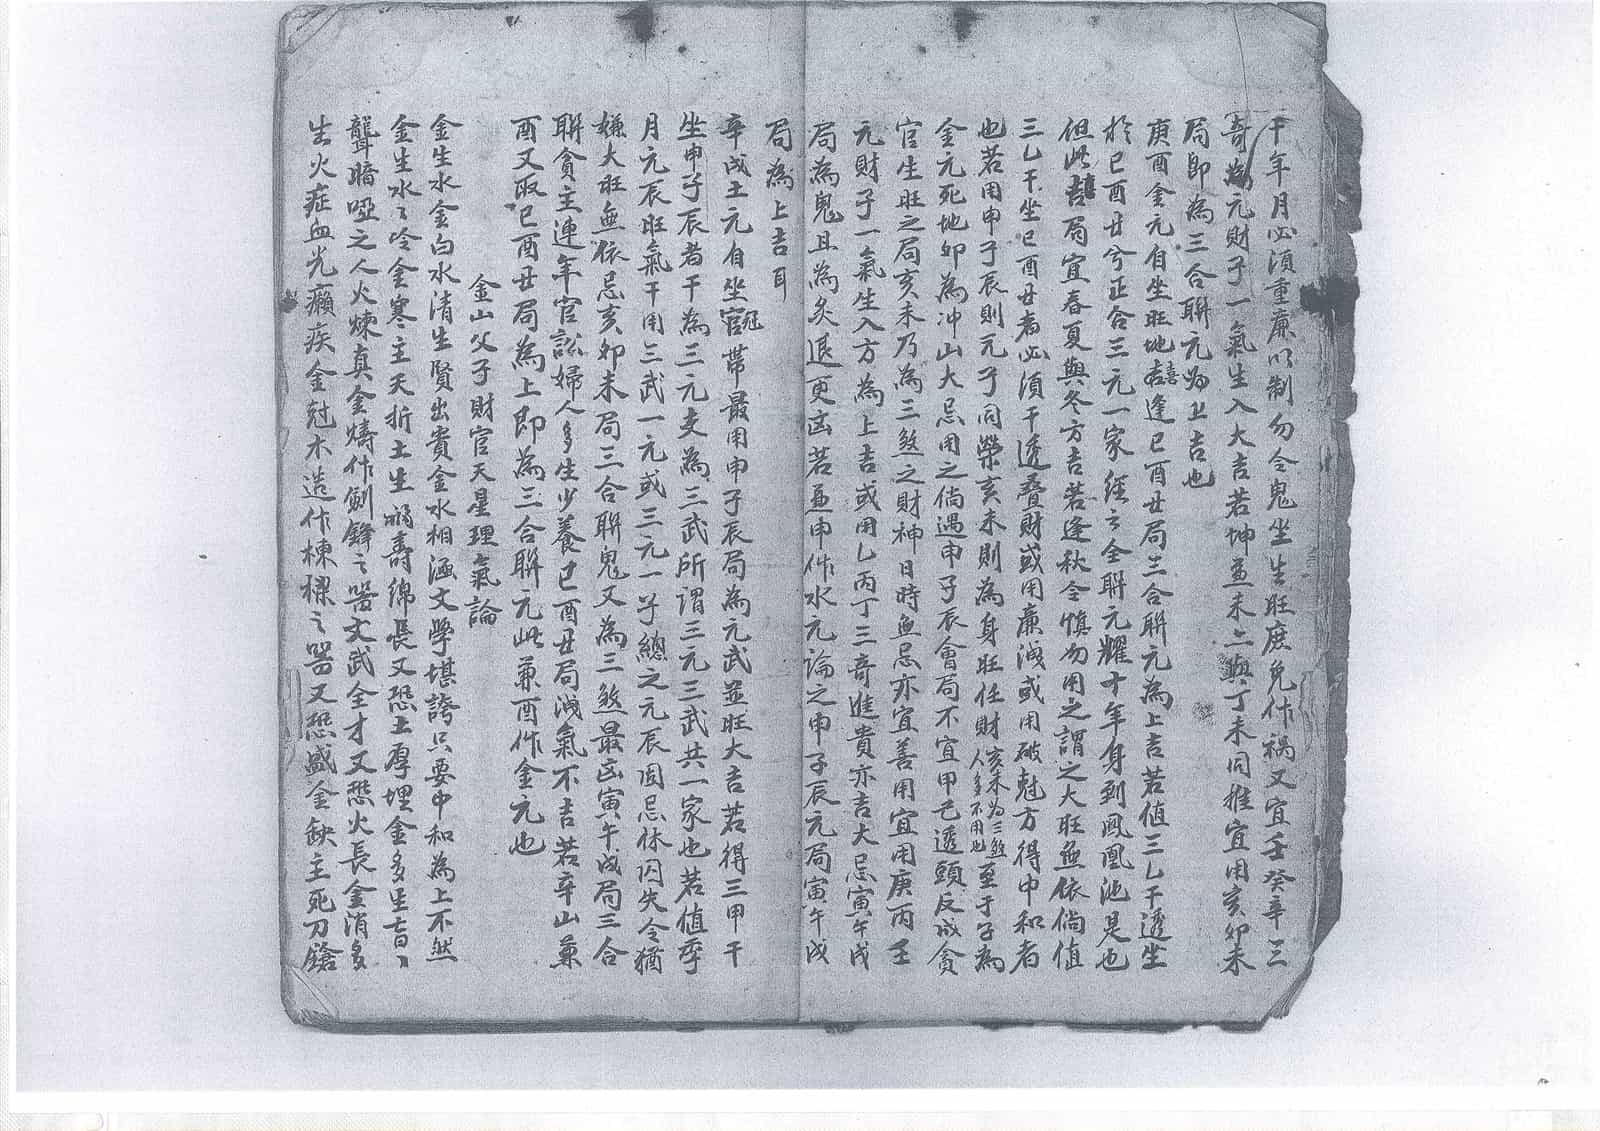 干年月必須重廉以制勿令鬼坐生旺庶免作禍又宜壬癸辛三
奇為元財子一氣生入大吉若坤兼未二與丁未同推宜用亥卯未
局即為三合聯元為上吉也
庚酉金元自坐旺地喜逢巳酉丑局三合聯元為上吉若值三乙干透坐
於巳酉丑兮正合三元一家經云全聯元耀十年身到鳳凰池是也
但此局宜春夏與冬方吉若逢秋令慎勿用之謂之大旺無依倘值
三乙干坐巳酉丑者必須干透叠財或用廉洩或用破尅方得中和者
也若用申子辰則元子同榮亥未則為身旺任財亥未为三煞人多不用也至于子為
金元死地卯為冲山大忌用之倘遇申子辰會局不宜甲己透頭反成貪
官生旺之局亥未乃為三煞之財神日時無忌亦宜善用宜用庚丙壬
元財子一氣生入方為上吉或用乙丙丁三奇進貴亦吉大忌寅午戌
局為鬼且為炙退更凶若兼申作水元論之申子辰元局寅午戌
局為上吉耳
辛戌土元自坐冠帶最用申子辰局為元武並旺大吉若得三甲干
坐申子辰者干為三元支為三武所謂三元三武共一家也若值季
月元辰旺氣干用三武一元或三元一子總之元辰固忌休囚失令猶
嫌大旺無依忌亥卯未局三合聯鬼又為三煞最凶寅午戌局三合
聯貪主連年官訟婦人多生少養巳酉丑局洩氣不吉若辛山兼
酉又取巳酉丑局為上即為三合聯元此兼酉作金元也
金山父子財官天星理氣論
金生水金白水清生賢出貴金水相涵文學堪誇只要中和為上不然
金生水水冷金寒主夭折土生福壽綿長又恐土厚埋金多生盲
聾暗啞之人火煉真金鑄作劍鋒之器文武全才又恐火長金消多
生火症血光癩疾金尅木造作棟樑之器又恐盛金缺主死刀鎗